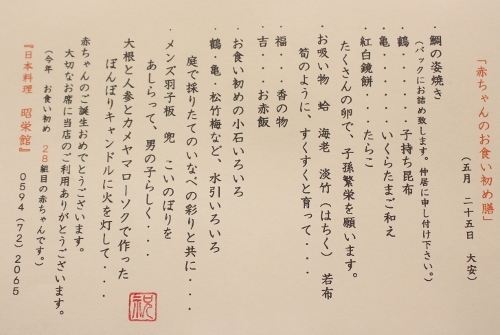 「赤ちゃんのお食い初め膳」
（五月　二十五日　大安）
・鯛の姿焼き
（パックにお詰め致します。仲居に申し付け下さい。）
鶴・・・・・子持ち昆布
亀・・・・・いくらたまご和え
紅白鏡餅・・・・たらこ
たくさんの卵で、子孫繁栄を願います。
・お吸い物　蛤　海老　淡竹（はちく）　若布
筍のように、すくすくと育って・・・
福・・・香の物
吉・・・お赤飯
・お食い初めの小石いろいろ
・鶴・亀・松竹梅など、水引いろいろ
庭で採りたてのいなべの彩りと共に・・・
・メンズ羽子板　兜　こいのぼりを
あしらって、男の子らしく・・・
大根と人参とカメヤマローソクで作った
ぼんぼりキャンドルに火を灯して・・・
赤ちゃんのご誕生おめでとうございます。
大切なお席に当店のご利用ありがとうございます。
（今年　お食い初め　２８組目の赤ちゃんです。）
『日本料理　昭栄館』　０５９４（７２）２０６５
祝